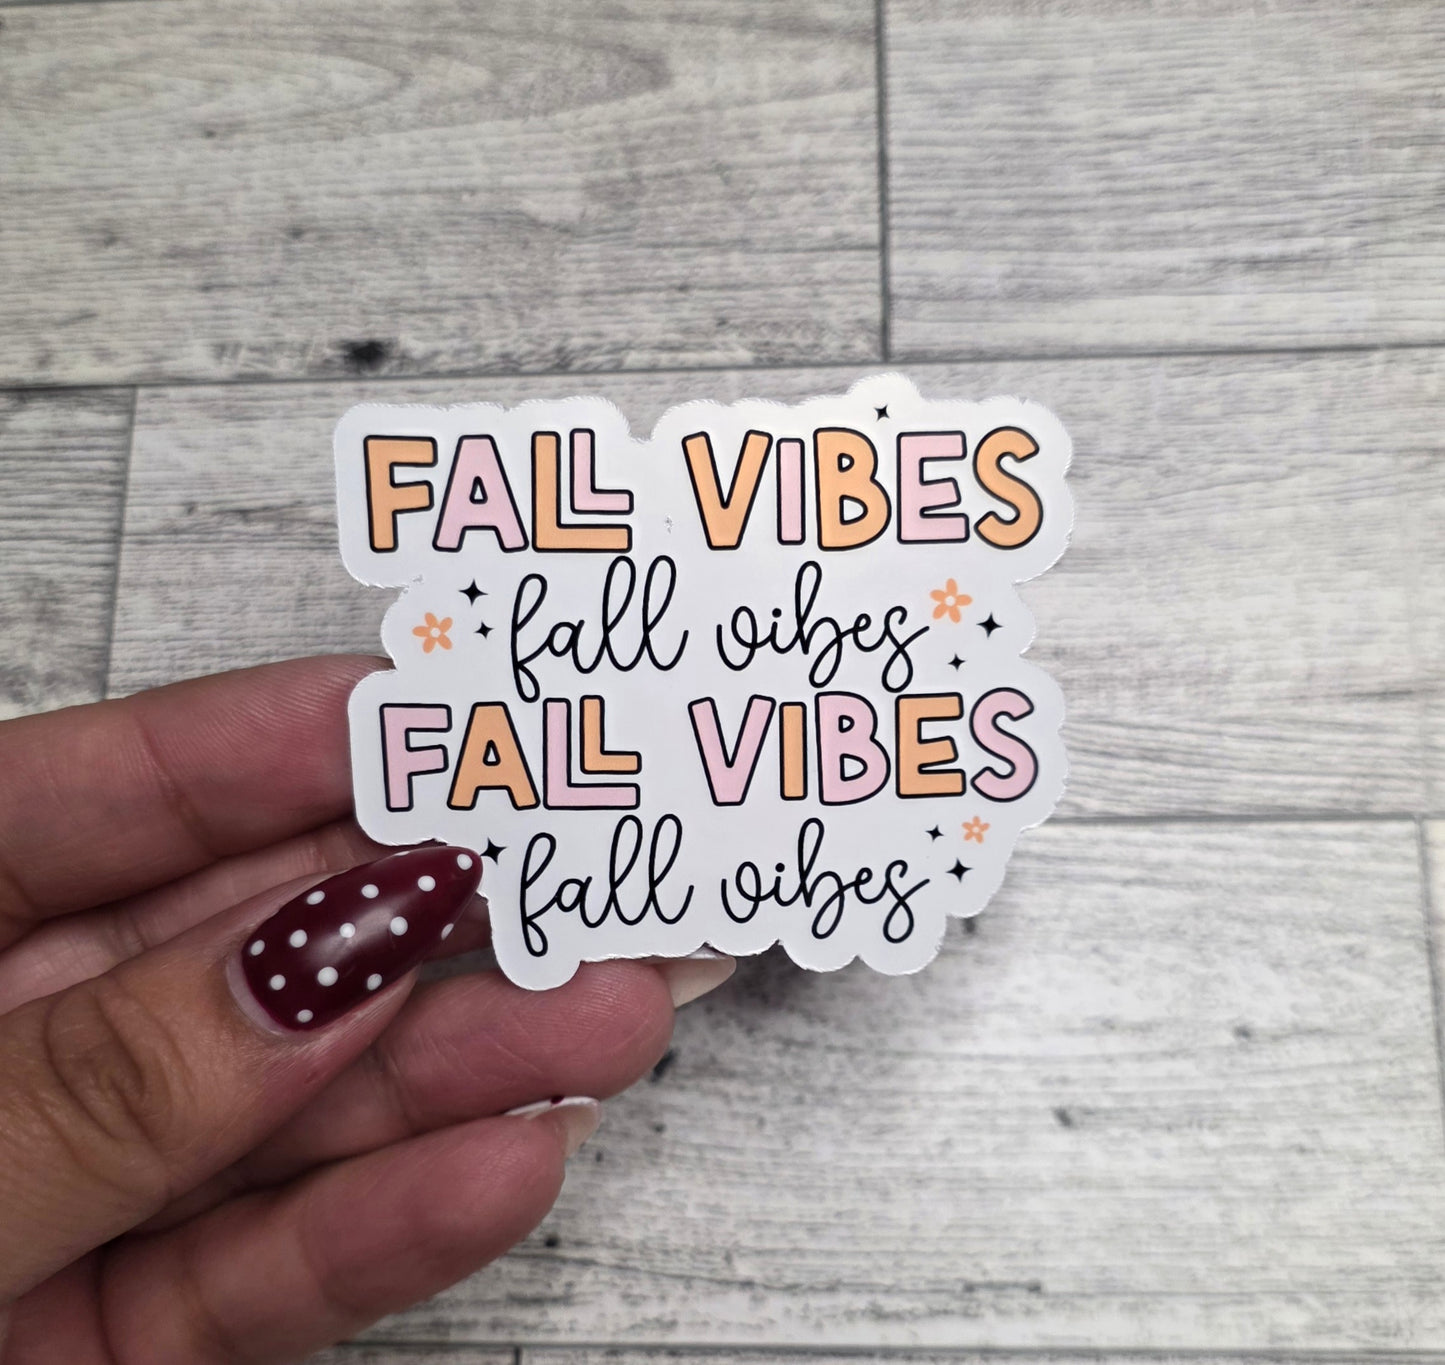 FALL VIBES
fall vibes
FALL VIBES
fall vibes